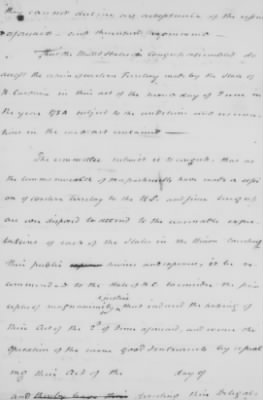 they cannot decline an acceptance of the cession
aforesaid and therefore recommend
That the United States in Congress assembled do
accept the cession of western Territory made by the State of
N. Carolina in their act of the second day of June in
the year 1784 subject to the conditions and reserva
tions in the said act contained
The committee submit it to Congress, that as
the commonwealth of Massachusetts have made a cessi
on of western Territory to the U.S. and since Congress
are disposed to attend to the reasonable expec
tations of each of the States in the Union touching
their public and expences, it be re
commended to the State of N.C. to consider the prin
ciples of magnanimity & justice that induced the making of
their Act of the 2d of June aforesaid, and revive the
operation of the same good sentiments by repeal
ing their Act of the day of
and directing their Delegates